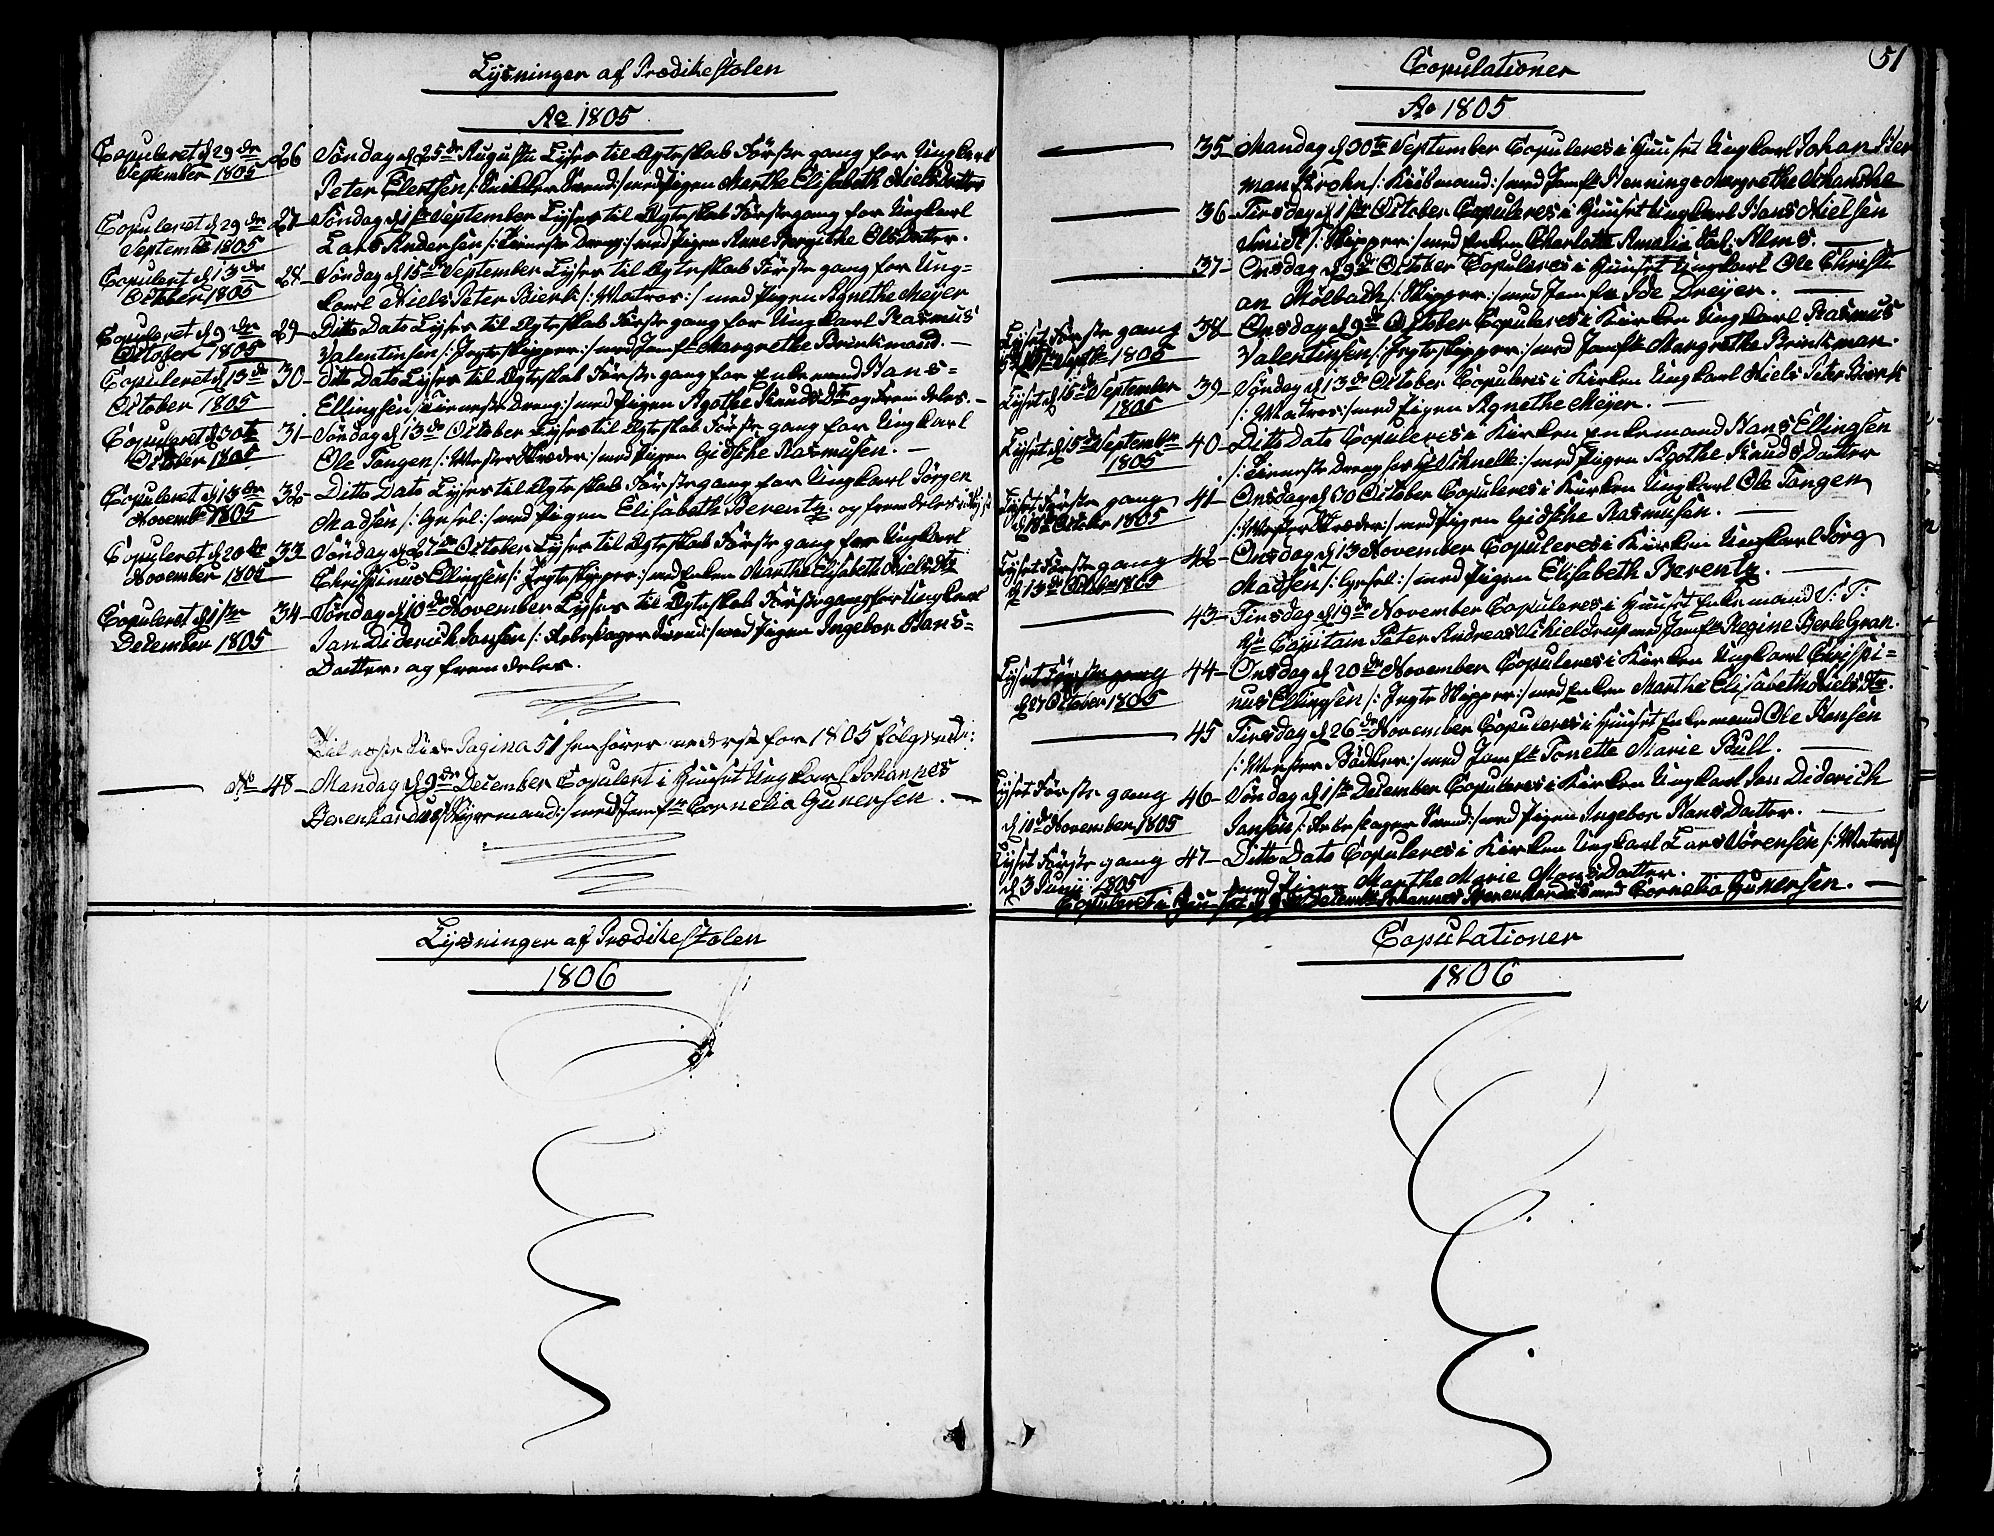 Lysninger af Prædikestolen
Ao 1805
Copuleret d 29de September 1805
26 Söndag d 25de Augusti Lyses til Ægteskab Förste gang for Ungkarl
Peter Elertsen /: Snikker Svend :/ med Pigen Marthe Elisabeth NielsDatter
Copuleret d 29de September 1805
27 Söndag d 1ste September Lyses til Ægteskab Förste gang for Ungkarl
Lars Andersen /: Tieneste Dreng :/ med Pigen Anne Bergithe OlsDatter.
Copulert d 13de October 1805
28 Söndag d 15de September Lyses til Ægteskab Förste gang for Ung=
karl Niels Peter Bierk /: Matros :/ med Pigen Agnethe Meyer
Copuleret d 9de October 1805
29 Ditto Dato Lyses til Ægteskab Förste gang for Ungkarl Rasmus
Valentinsen /: Jegteskipper :/ med Jomfr Margrethe Brinkmand.
Copuleret d 13de October 1805
30 Ditto Dato Lyses til Ægteskab Förste gang for Enkemand Hans=
Ellingsen /: Tieneste Dreng :/ med Pigen Agothe KnudsDtr og Fremdeles.
Copuleret d 30te October 1805
31 Söndag d 13de October Lyses til Ægteskab Förste gang for Ungkarl
Ole Tangen /: Mester Skræder :/ med Pigen Gidsche Rasmusen.
Copuleret d 13de November 1805
32 Ditto Dato Lyses til Ægteskab Förste gang for Ungkarl Jörgen
Madsen /: Gesel :/ med Pigen Elisabeth Berentz. og fremdeles
Copuleret d 20de November 1805
33 Söndag d 27de October Lyses til Ægteskab Förste gang for Ungkarl
Chrispinus Ellingsen /: Jegteskipper :/ med Enken Marthe Elisabeth NielsDtr
Copuleret d 1ste December 1805
34 Söndag d 10de November Lyses til Ægteskab Förste gang for Ungkarl
Jan Diderich Jansen /: Rebslager Svend :/ med Pigen Ingebor Hans=
Datter, og fremdeles.
Til neste Side Pagina 51 henhörer nederst for 1805 fölgende:
No 48 Mandag d 9de December Copulert i Huuset Ungkarl Johannes
Berenhardus /: Styremand :/ med Jomfr Cornelia Gunersen.
Lysninger af Prædikestolen
1806
51
Copulationer
Ao 1805
35 Mandag d 30te September Copuleres i Huuset Ungkarl Johan Her
man Krohn /: Kiöbmand :/ med Jomfr Henninge Margrethe Schanche
36 Tirsdag d 1ste October Copuleres i Huuset Ungkarl Hans Nielsen
Smidt /: Skipper :/ med Enken Charlotte Amalia Sal: Alms.
37 Onsdag d 9de October Copuleres i Huuset Ungkarl Ole Christi
an Mölbach /: Skipper :/ med Jomfr Ide Dreyer.
Lyset Förste gang d 15de Septbr 1805
38 Onsdag d 9de October Copuleres i Kirken Ungkarl Rasmus
Valentinsen /: Jegteskipper :/ med Jomfr Margrethe Brinkman.
Lyset d 15de September 1805
39 Söndag d 13de October Copuleres i Kirken Ungkarl Niels Peter Bierk
/: Matros :/ med Pigen Agnethe Meyer.
Lyset d 15de September 1805
40 Ditto Dato Copuleres i Kirken Enkemand Hans Ellingsen
/: Tieneste Dreng hos Schnell :/ med Pigen Agothe KnudsDatter
Lyset Förste gang d 13de October 1805
41 Onsdag d 30 October Copuleres i Kirken Ungkarl Ole Tangen
/: Mester Skræder :/ med Pigen Gidsche Rasmusen.
Lyset Förste gang d 13de October 1805
42 Onsdag d 13 November Copuleres i Kirken Ungkarl Jörg
Madsen /: Gesel :/ med Pigen Elisabeth Berentz.
43 Tirsdag d 19de November Copuleres i Huuset Enkemand S: T:
Hr Capitain Peter Andreas Schieldrup med Jomfr Regine Berle Gran.
Lyset Förste gang d 27 October 1805
44 Onsdag d 20de November Copuleres i Kirken Ungkarl Chrispi=
nus Ellingsen /: Jegte Skipper :/ med Enken Marthe Elisabeth NielsDtr.
45 Tirsdag d 26de November Copuleres i Huuset Enkemand Ole Hansen
/: Mester Bödker :/ med Jomfr Tonette Marie Bull.
Lyset Förste gang d 10de November 1805
46 Söndag d 1ste December Copuleres i Kirken Ungkarl Jan Diderich
Jansen /: Rebslager Svend :/ med Pigen Ingebor HansDatter.
Lyset Förste gang d 3 Junij 1805
47 Ditto Dato Copuleres i Kirken Ungkarl Lars Sörensen /: Matros
med Pigen Marthe Marie MonsDatter.
Copuleret i Huuset d 9de Decembr Johannes Berenhardus med Cornelia Gunersen.
Copulationer
1806